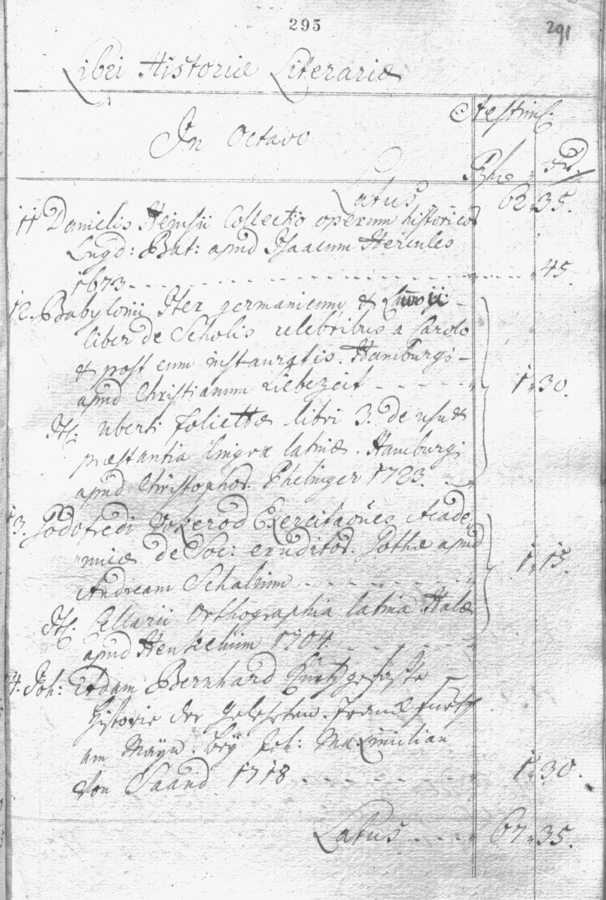 295
291
Libri Historiæ Literariæ
Æstim:
In Octavo
Rhe xr.
Latus 62. 35.
11 Danielis Heinsii Collectio operum historicor
Lugd: Bat: apud Isaacum Hercules
1673 45.
12. Babylonii Iter germanicum &
liber de Scholis celebribus a Carolo
& post eum instauratis. Hamburgi
apud Christianum Liebezeit 1. 30.
It: uberti folietæ libri 3. de usu &
præstantia linguæ latinæ. Hamburgi
apud Christophor. 1723.
13. Godofredi Vokerod Exercitationes Acade-
micæ de Soc: eruditor. Gothæ apud
Andream Schalium 1. 15.
It: Cellarii Orthographia latina Halæ
apud Henkelium 1704.
14. Joh: Adam Bernhard kurtzgefaste
Historie der Gelehrten. Franckfurth
am Mayn. bey Joh: Maximilian
von Saand. 1718 1. 30.
Latus 67. 35.